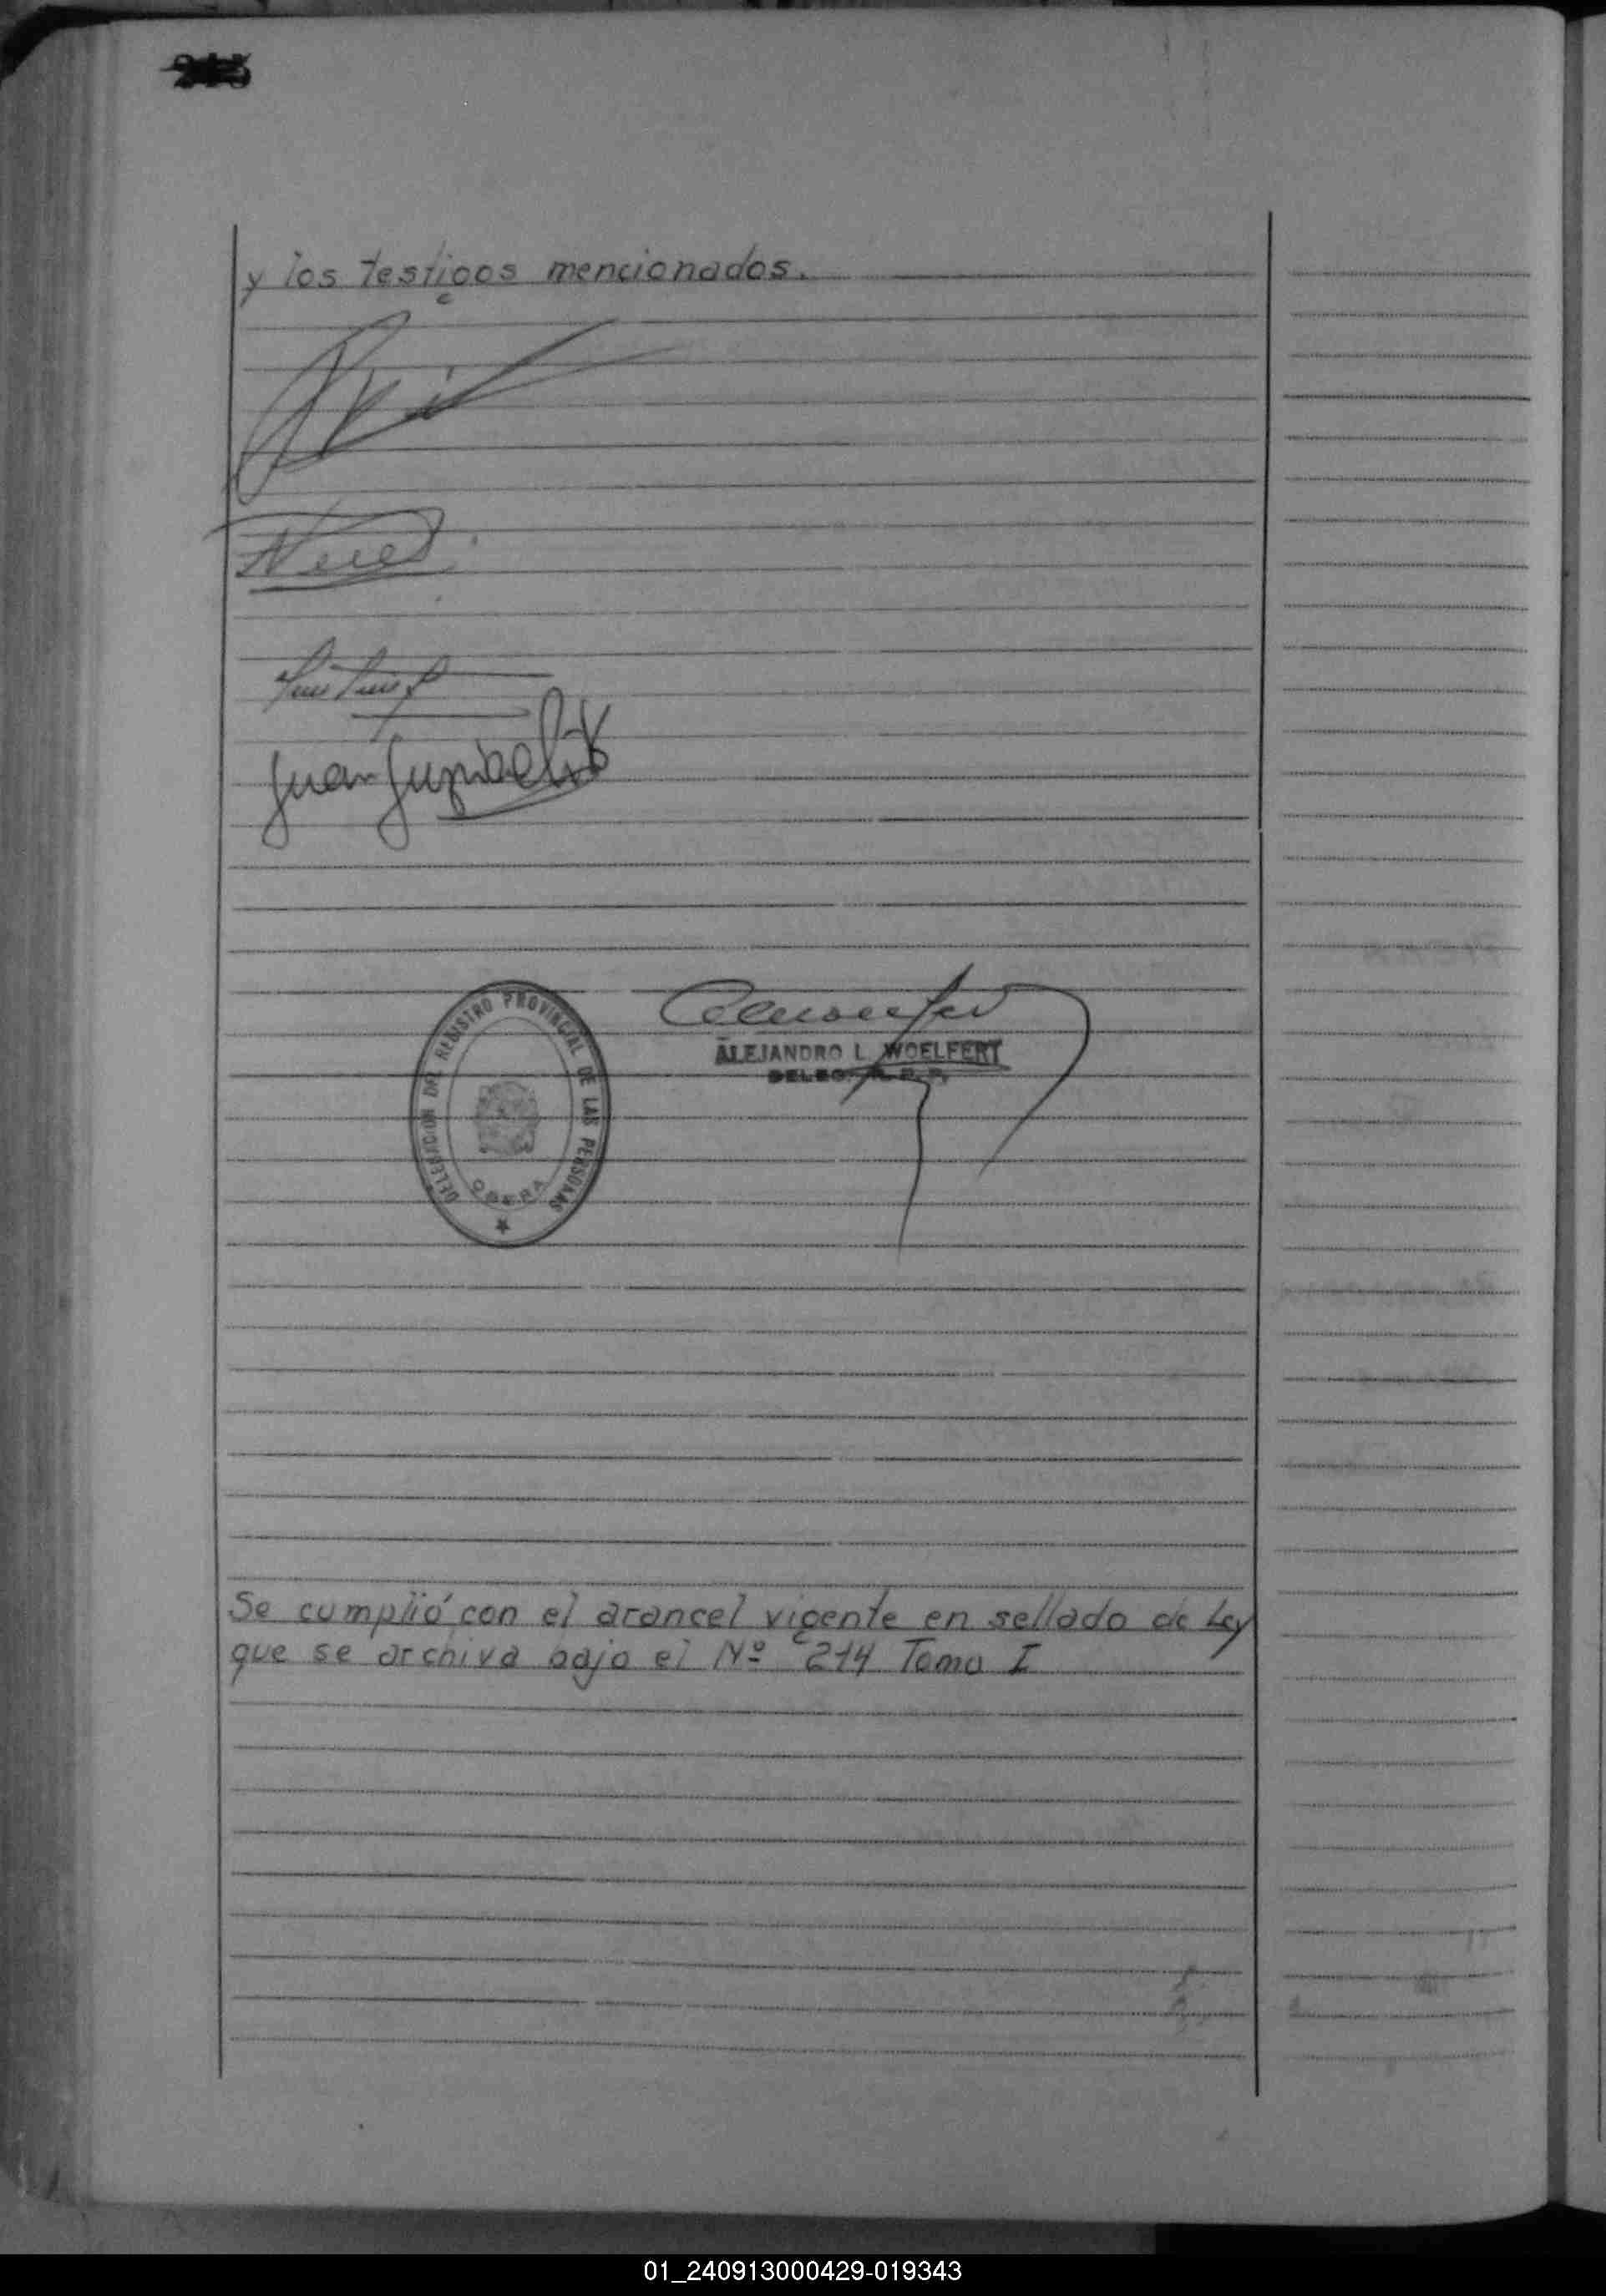 y los testigos mencionados.
Juan
DELEGACION DEL REGISTRO PROVINCIAL DE LAS PERSONAS
OBERA
ALEJANDRO L. WOELFERT
DELEG. R. P. P.
Se cumplió con el arancel vigente en sellado de Ley
que se archiva bajo el Nº 214 Tomo I
01_240913000429-019343